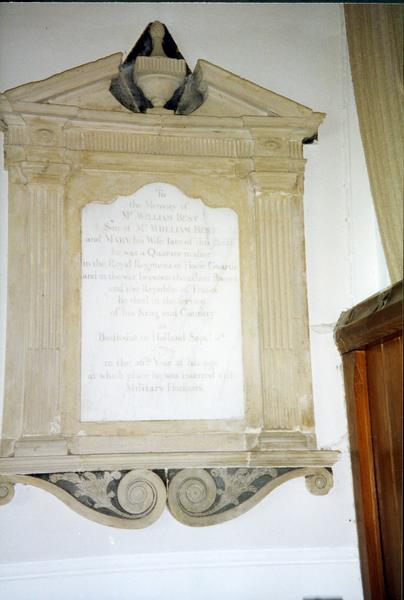 To
the Memory of
Mr WILLIAM BEST
Son of Mr WILLIAM BEST
and MARY his Wife late of this
he was a Quarter master
in the Royal Regiment of Horse Guards
and in the war between the allied Powers
and the Republic of France
he died in the service
of his King and Country
at
in Holland Sepr
in the 26th Year of his age
at which place he was interred with
Military Honours.